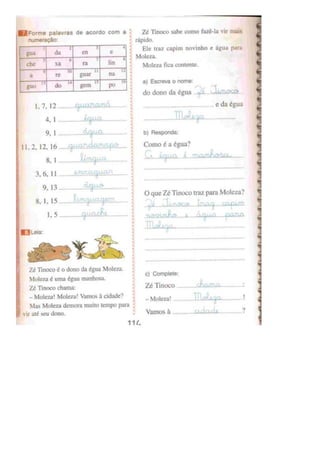 Forme palavras de acordo com a
numeração:
gua da en e
che xa ra lin
a re guar na
guo do gem po
1, 7, 12 guaraná
4, 1 égua
9, 1 água
11, 2, 12, 16 guardanapo
8, 1 língua
3, 6, 11 enxaguar
9, 13 água
8, 1, 15 linguagem
1, 5 guache
Leia:
Zé Tinoco é o dono da égua Moleza.
Moleza é uma égua manhosa.
Zé Tinoco chama:
– Moleza! Moleza! Vamos à cidade?
Mas Moleza demora muito tempo para
vir até seu dono.
Zé Tinoco sabe como fazê-la vir mais
rápido.
Ele traz capim novinho e água para
Moleza.
Moleza fica contente.
a) Escreva o nome:
do dono da égua Zé Tinoco
e da égua
Moleza
b) Responda:
Como é a égua?
A égua é manhosa.
O que Zé Tinoco traz para Moleza?
Zé Tinoco traz capim
novinho e água para
Moleza.
c) Complete:
Zé Tinoco chama :
– Moleza! Moleza !
Vamos à cidade ?